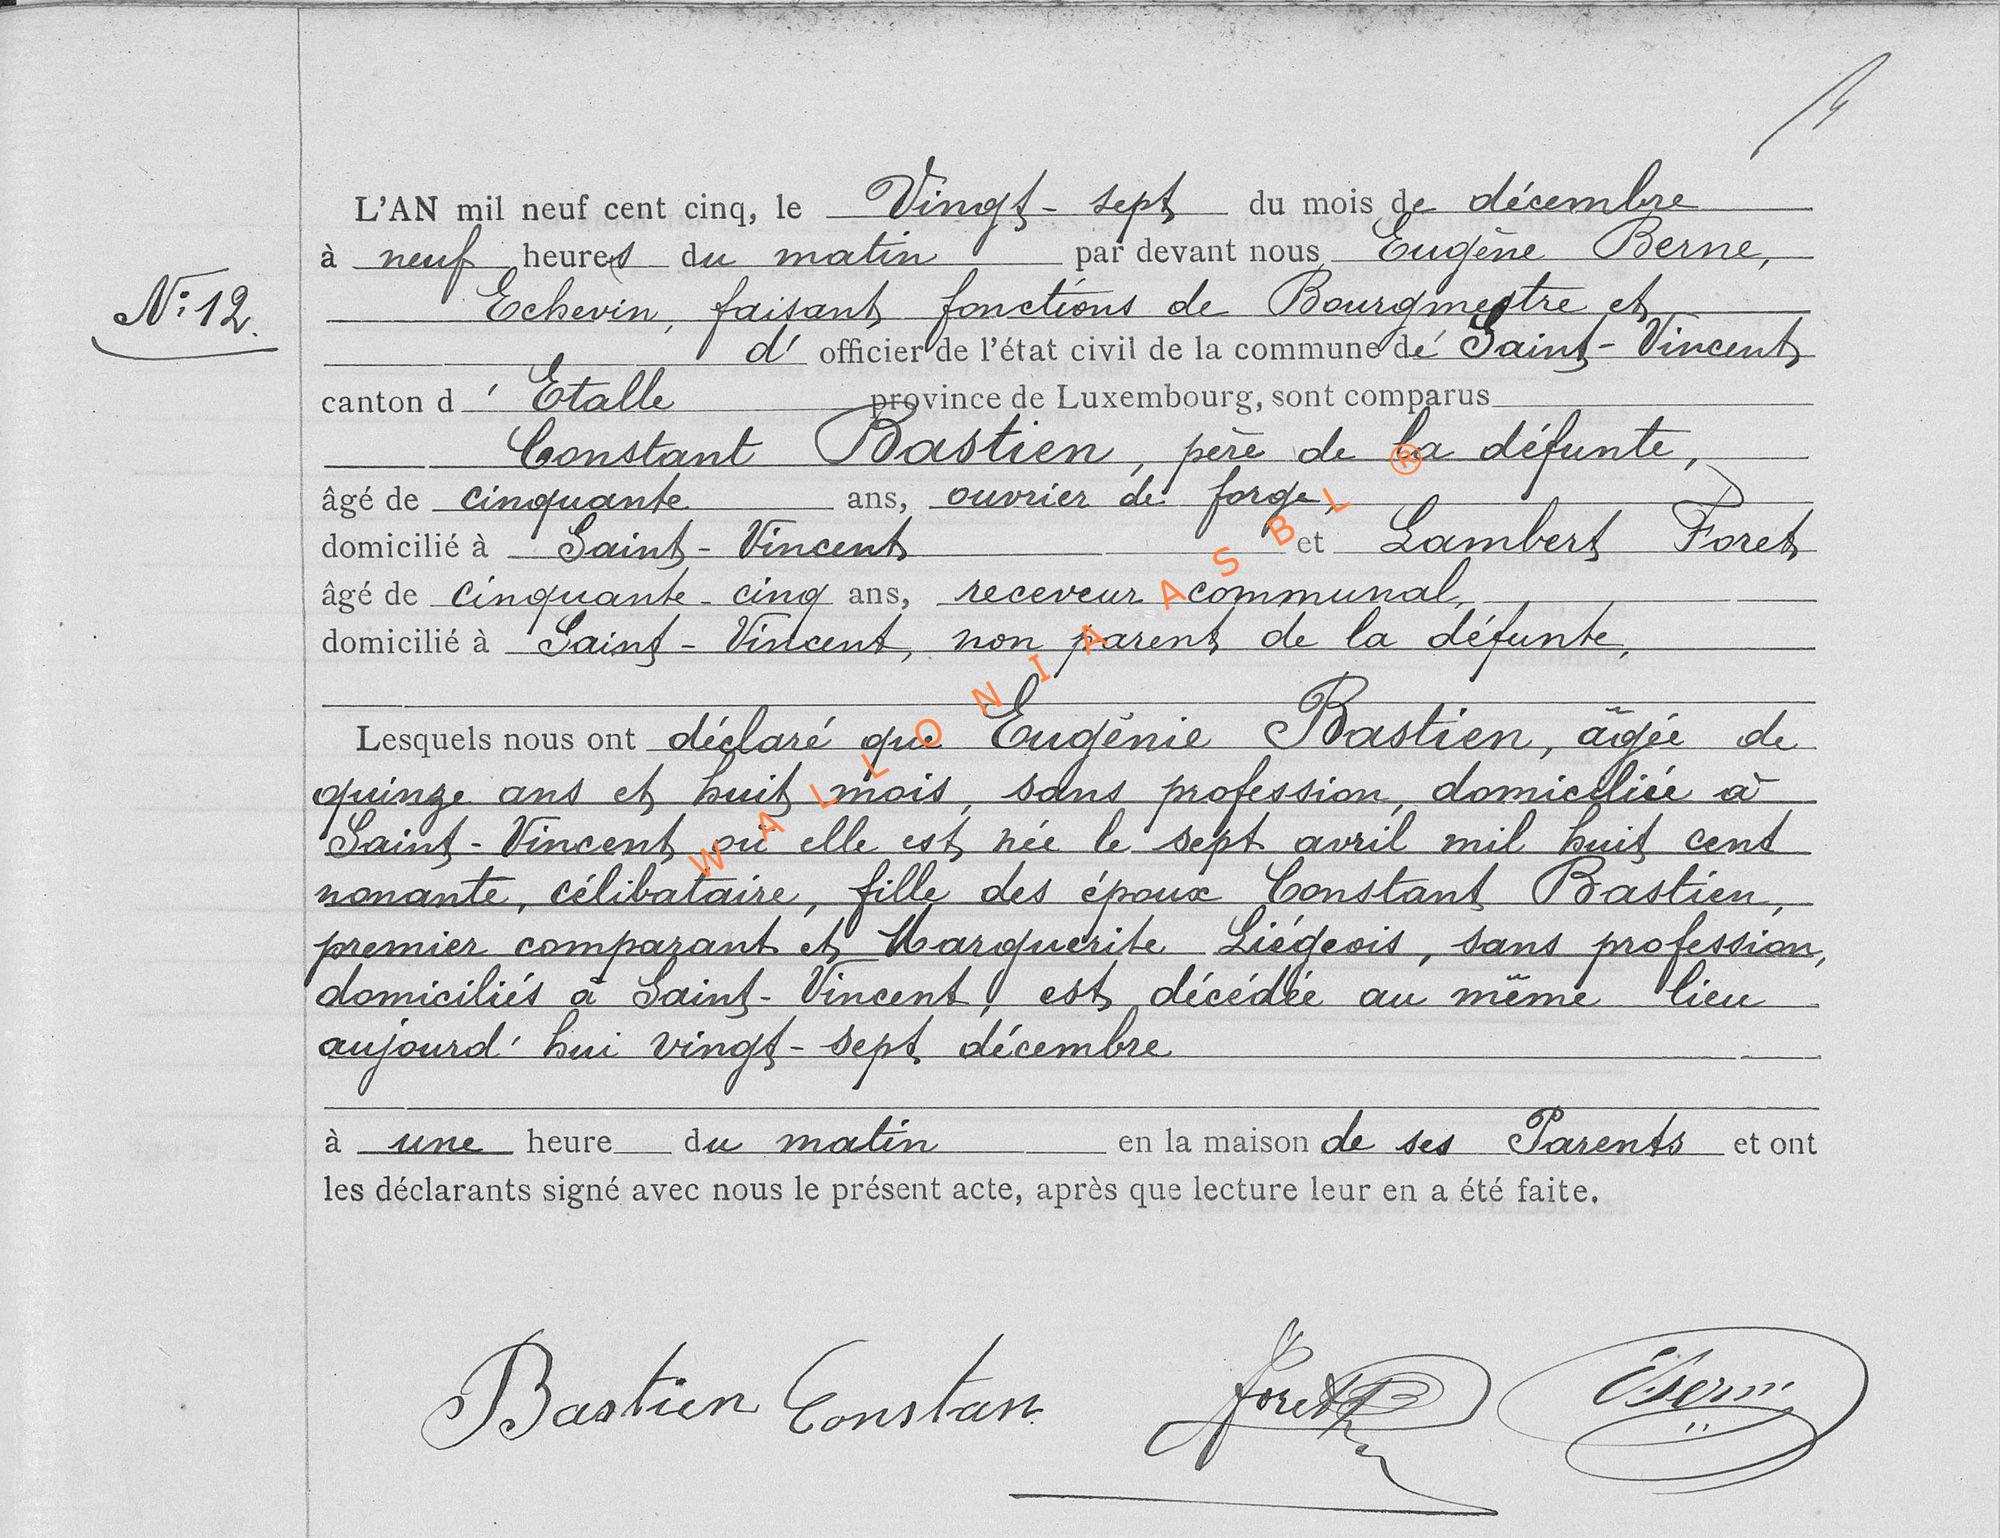 L'AN mil neuf cent cinq, le Vingt-sept du mois de décembre
à neuf heures du matin par devant nous Eugène Berne,
N° 12.
Echevin, faisant fonctions de Bourgmestre et
d' officier de l'état civil de la commune de Saint-Vincent
canton d' Etalle province de Luxembourg, sont comparus
Constant Bastien, père de la défunte,
âgé de cinquante ans, ouvrier de forge,
domicilié à Saint-Vincent et Lambert Foret
âgé de cinquante-cinq ans, receveur communal,
domicilié à Saint-Vincent, non parent de la défunte,
Lesquels nous ont déclaré que Eugénie Bastien, âgée de
quinze ans et huit mois, sans profession, domiciliée à
Saint-Vincent où elle est née le sept avril mil huit cent
nonante, célibataire, fille des époux Constant Bastien,
premier comparant et Marguerite Liégeois, sans profession,
domiciliés à Saint-Vincent, est décédée au même lieu
aujourd'hui vingt-sept décembre
à une heure du matin en la maison de ses Parents et ont
les déclarants signé avec nous le présent acte, après que lecture leur en a été faite.
Bastien Constan Foret
WALLONIA ASBL ®